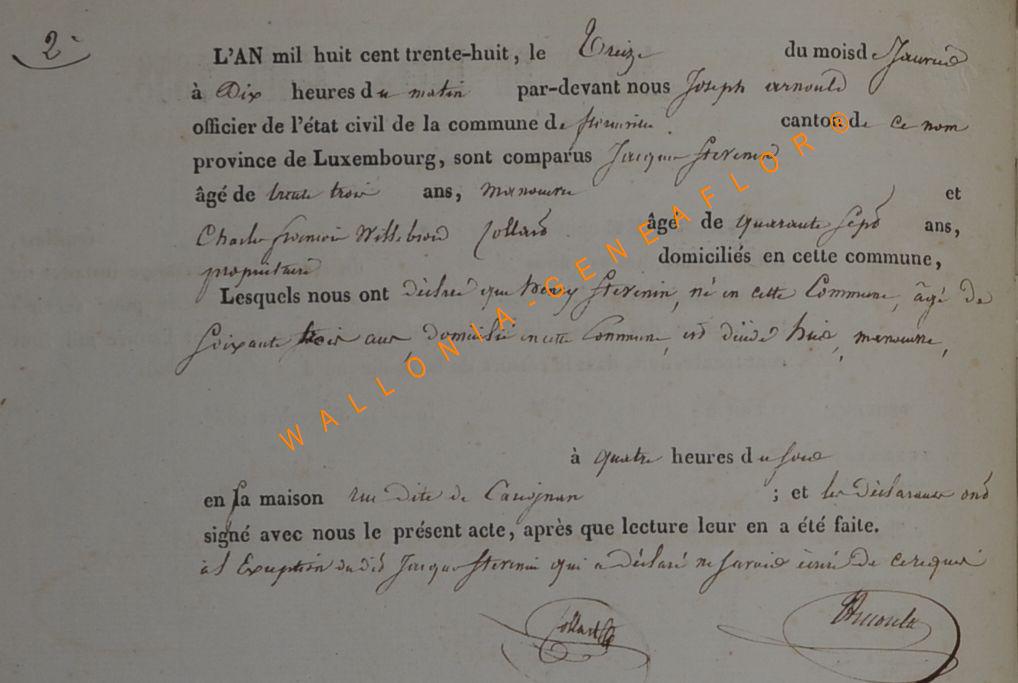 2
L'AN mil huit cent trente-huit, le Treize du mois de Janvier
à Dix heures du matin par-devant nous Joseph Arnould
officier de l'état civil de la commune de florenville canton de ce nom
province de Luxembourg, sont comparus Jacque Stevenin
âgé de trente trois ans, manouvre et
Charle françois Willebrod Collard âgé de quarante Sept ans,
propriétaire domiciliés en cette commune,
Lesquels nous ont déclaré que henry Stevenin, né en cette Commune, âgé de
Soixante trois ans, domicilié en cette Commune, est décédé hier, manouvre,
à quatre heures du soir
en sa maison rue dite de Carignan ; et les déclarans ont
signé avec nous le présent acte, après que lecture leur en a été faite.
à l'Exception du dit Jacque Stevenin qui a déclaré ne savoir écrire de ce requis
Collard Arnould
WALLONIA-GENEAFLOR©